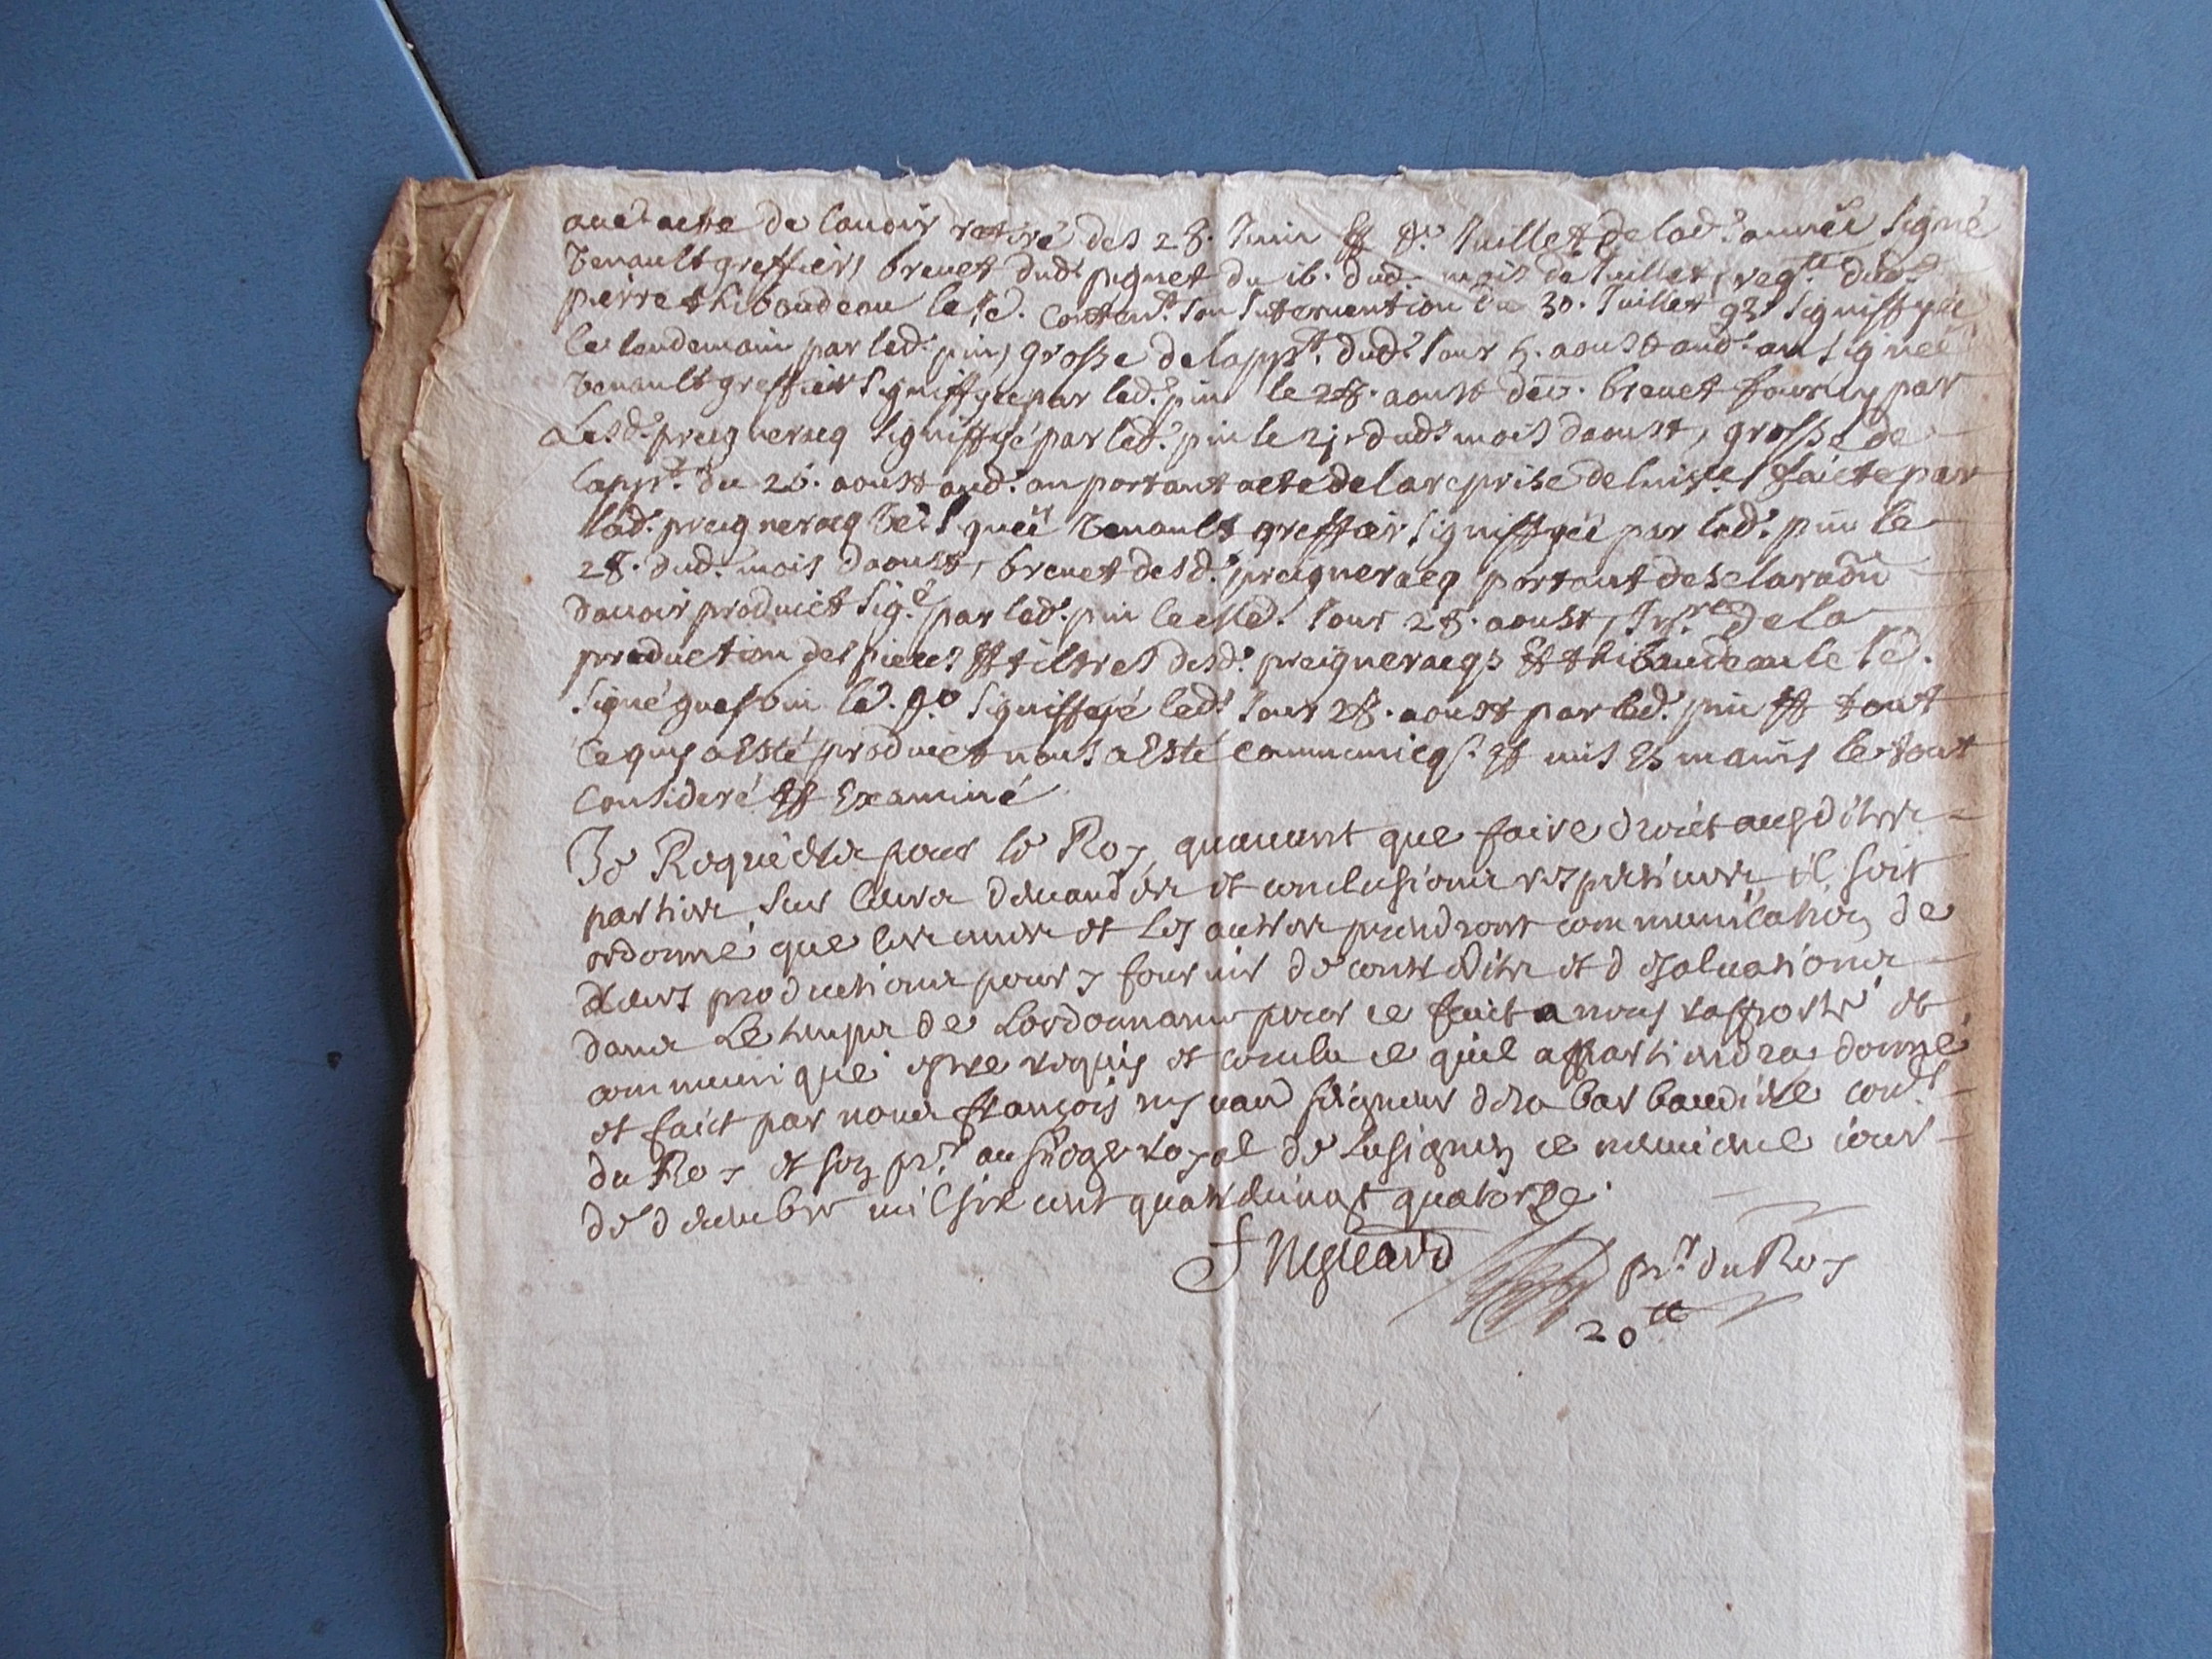 avec acte de lavoir retiré des 28. Juin et Juillet de lad. année signé
Benault greffier, brevet dud. pignet du 16. dud. mois de Juillet, reqte. dud.
pierre thibaudeau le Je. conten.t son Intervention du 30. Juillet 93. signiffyée
le lendemain par led. pin, grosse de lapp.t dud. Jour 5. aoust aud. an signée
Benault greffier signiffyée par led. pin le 28. aoust brevet fourny par
Lesd. preigneracq signiffyé par led. pin le dud. mois daoust, grosse de
lapp.t du 26. aoust aud. an portant acte de la reprise faicte par
lad. preigneracq signée Benault greffier signiffyée par led. pin le
28. dud. mois daoust, brevet desd. preigneracq portant desclaration
davoir produict sig.é par led. pin le Jour 28. aoust, de la
production des pieces et tiltres desd. preigneracqs et thibaudeau le Je.
signé signiffyé led. Jour 28. aoust par led. pin et tout
ce quy a Esté produict nous a Esté communicqé et mis Es mains le tout
consideré et Examiné
Je Requiers pour le Roy, quavant que faire droict ausdites
parties sur leurs demandes et conclusions respectives, il soit
ordonné que les unes et les autres prendront communication de
leurs productions pour y fournir de contredits et de salvations
dans Le temps de Lordonnance pour ce faict a nous rapporté et
communiqué estre requis et conclu ce quil appartiendra donné
et faict par nous françois seigneur de la barbaudiere con.er
du Roy et son pr.r au siege royal de Lusignen ce neuvieme jour
de decembre mil six cent quatrevingt quatorze.
pr.r du Roy
20